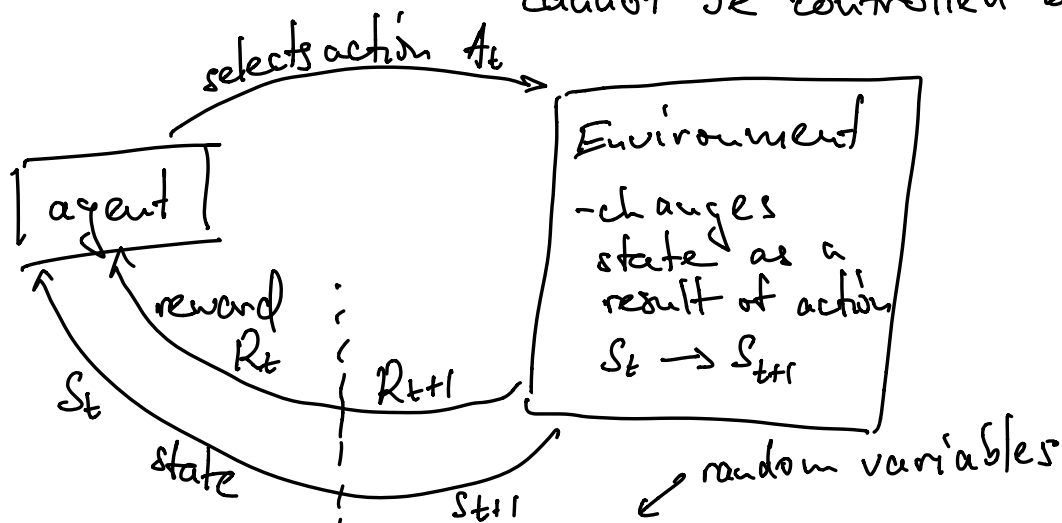 cannot be controlled
selects action A_t
Environment
agent
- changes
state as a
result of action
S_t → S_{t+1}
reward
R_t
R_{t+1}
S_t
state
S_{t+1}
random variables